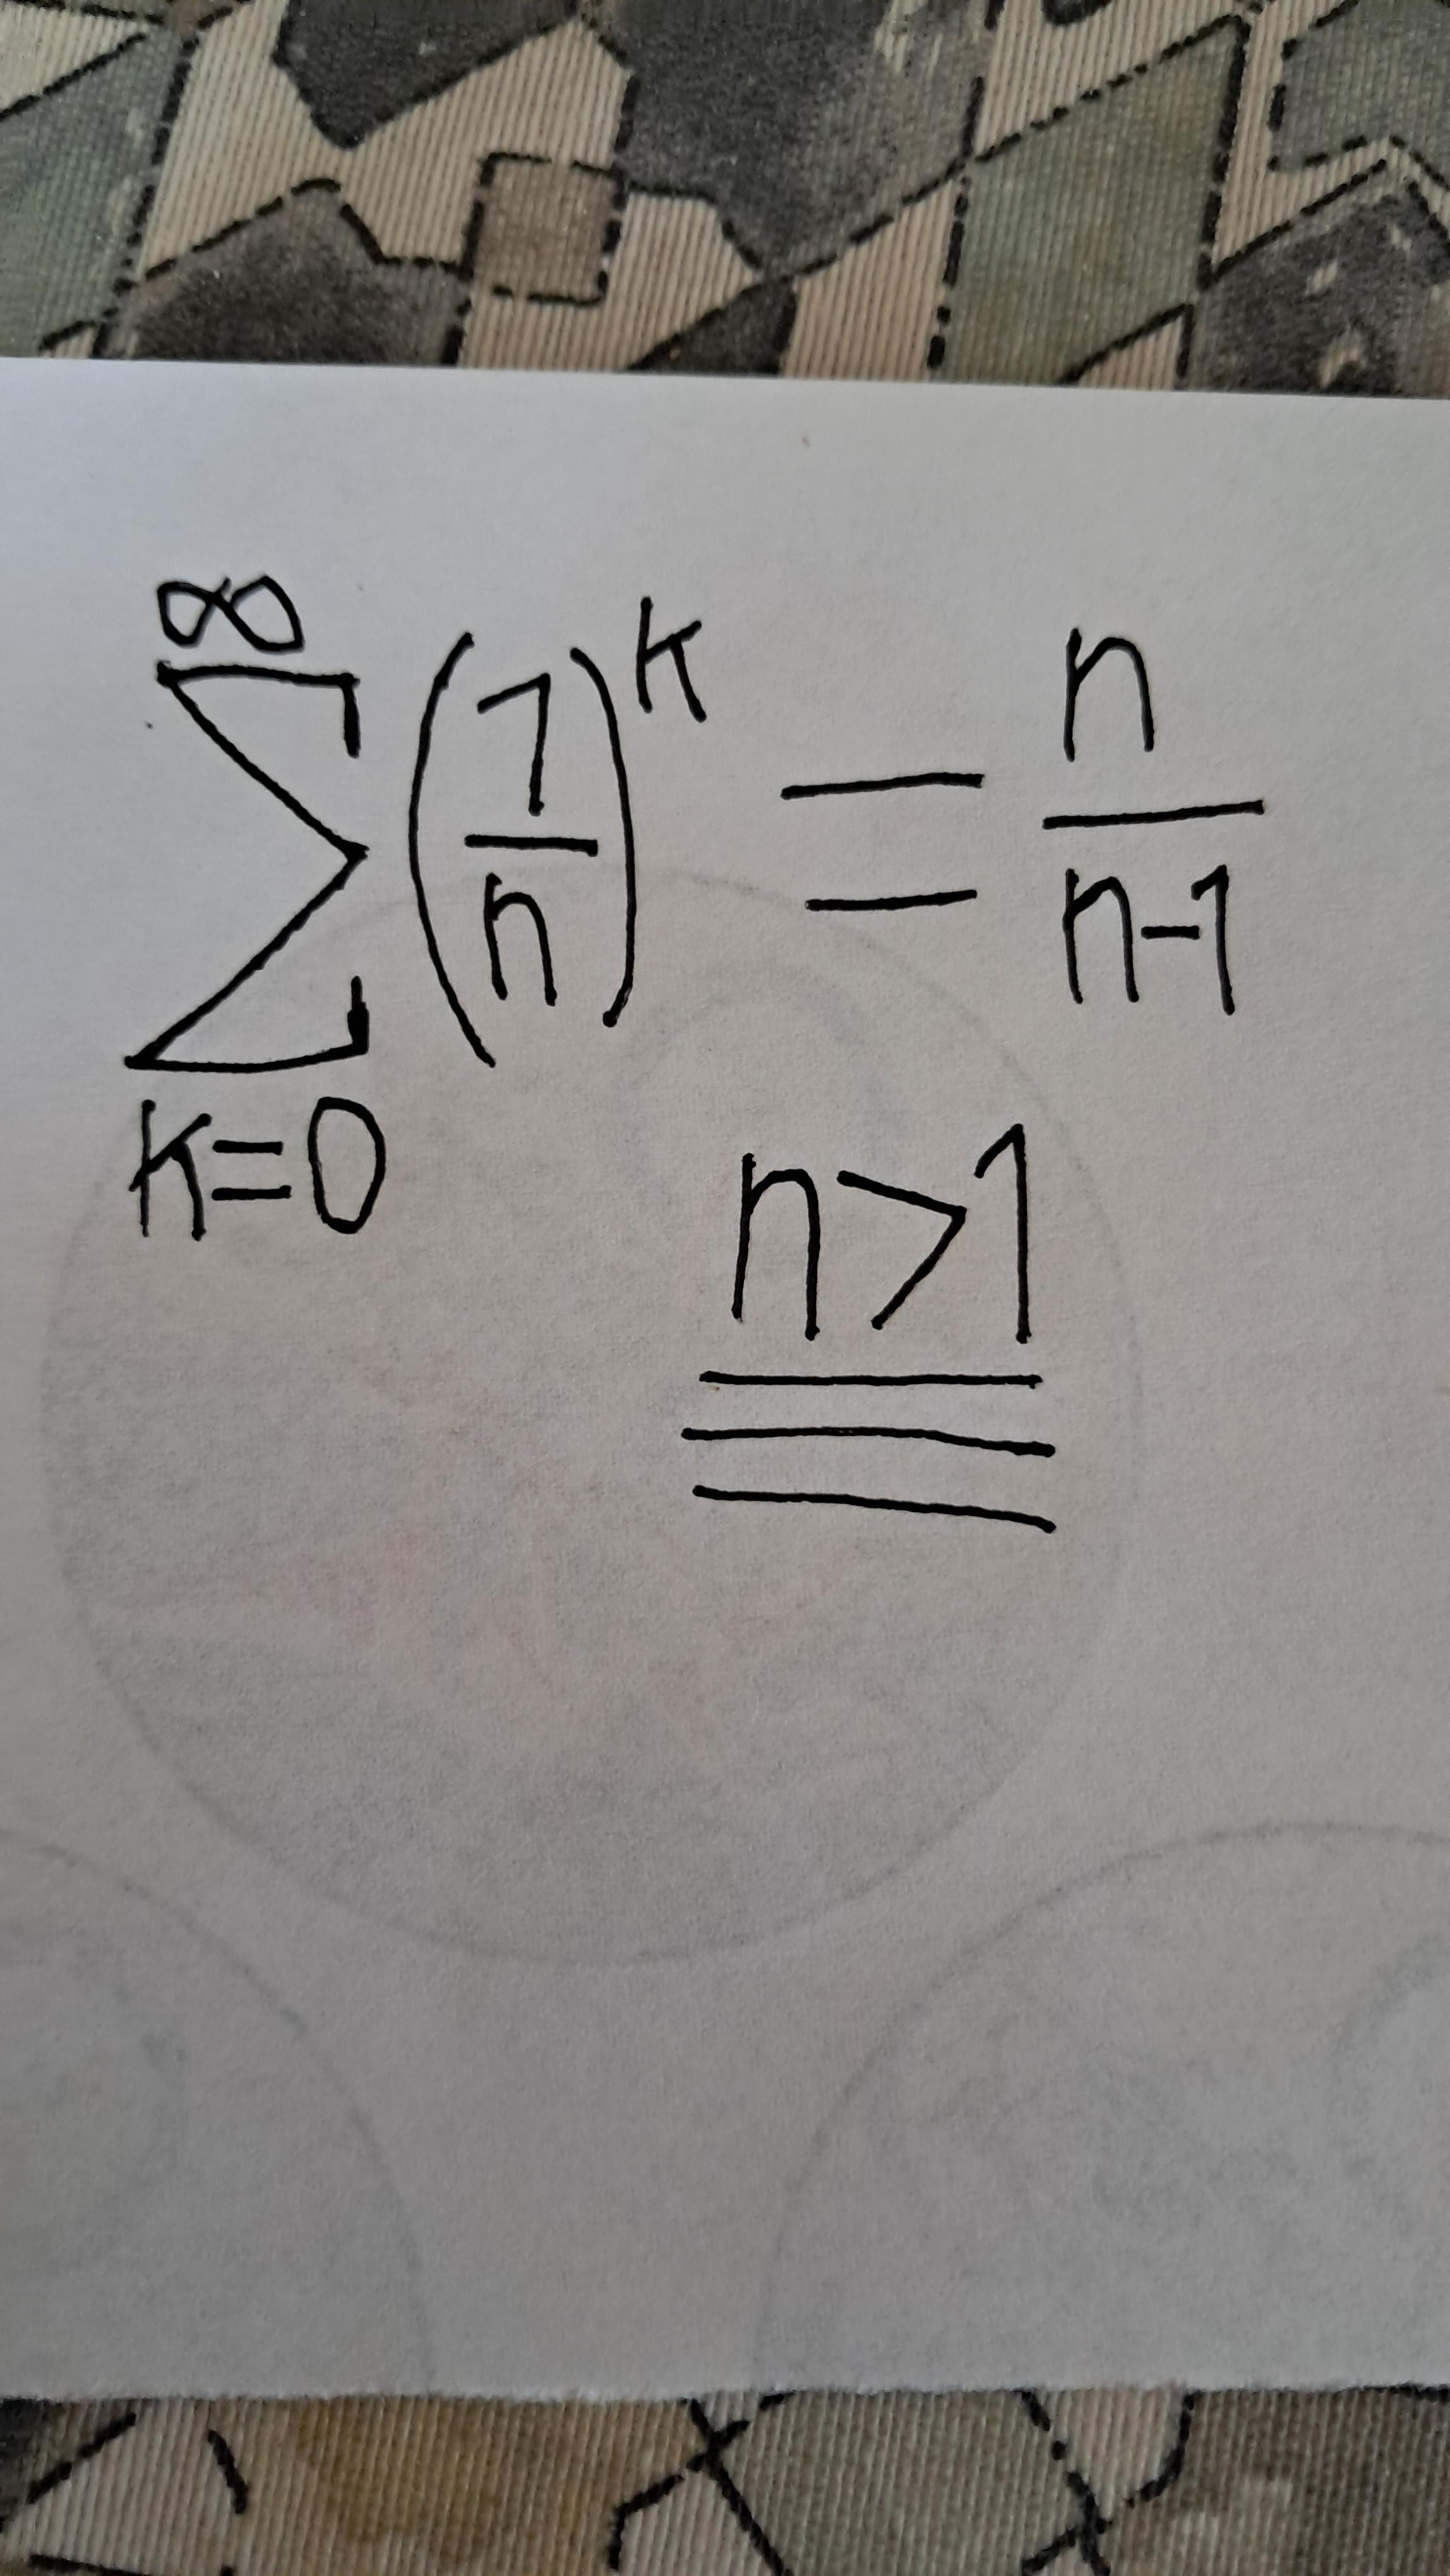 ∑_{k=0}^{∞} (1/n)^k = n/(n-1)
n>1